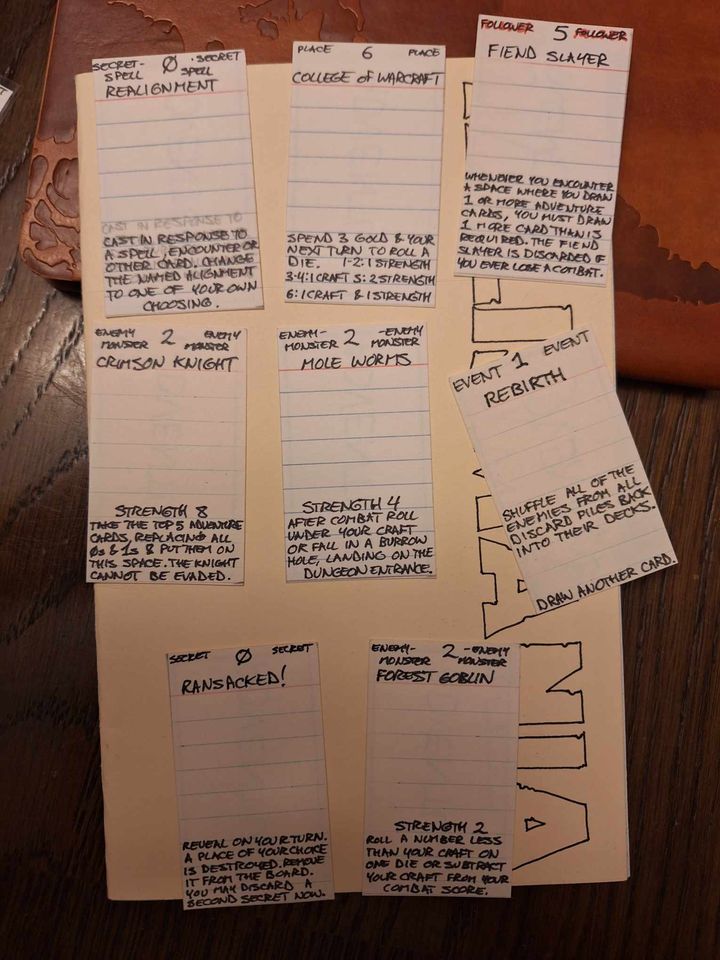 SECRET- Ø ·SECRET
SPELL SPELL
REALIGNMENT
CAST IN RESPONSE TO
CAST IN RESPONSE TO
A SPELL, ENCOUNTER OR
OTHER CARD. CHANGE
THE NAMED ALIGNMENT
TO ONE OF YOUR OWN
CHOOSING.
PLACE 6 PLACE
COLLEGE of WARCRAFT
SPEND 3 GOLD & YOUR
NEXT TURN TO ROLL A
DIE. 1-2: 1 STRENGTH
3-4: 1 CRAFT 5: 2 STRENGTH
6: 1 CRAFT & 1 STRENGTH
FOLLOWER 5 FOLLOWER
FIEND SLAYER
WHENEVER YOU ENCOUNTER
A SPACE WHERE YOU DRAW
1 OR MORE ADVENTURE
CARDS, YOU MUST DRAW
1 MORE CARD THAN IS
REQUIRED. THE FIEND
SLAYER IS DISCARDED IF
YOU EVER LOSE A COMBAT.
ENEMY 2 ENEMY
MONSTER MONSTER
CRIMSON KNIGHT
STRENGTH 8
TAKE THE TOP 5 ADVENTURE
CARDS, REPLACING ALL
Øs & 1s & PUT THEM ON
THIS SPACE. THE KNIGHT
CANNOT BE EVADED.
ENEMY- 2 -ENEMY
MONSTER MONSTER
MOLE WORMS
STRENGTH 4
AFTER COMBAT ROLL
UNDER YOUR CRAFT
OR FALL IN A BURROW
HOLE, LANDING ON THE
DUNGEON ENTRANCE.
EVENT 1 EVENT
REBIRTH
SHUFFLE ALL OF THE
ENEMIES FROM ALL
DISCARD PILES BACK
INTO THEIR DECKS.
DRAW ANOTHER CARD.
SECRET Ø SECRET
RANSACKED!
REVEAL ON YOUR TURN.
A PLACE OF YOUR CHOICE
IS DESTROYED. REMOVE
IT FROM THE BOARD.
YOU MAY DISCARD A
SECOND SECRET NOW.
ENEMY- 2 -ENEMY
MONSTER MONSTER
FOREST GOBLIN
STRENGTH 2
ROLL A NUMBER LESS
THAN YOUR CRAFT ON
ONE DIE OR SUBTRACT
YOUR CRAFT FROM YOUR
COMBAT SCORE.